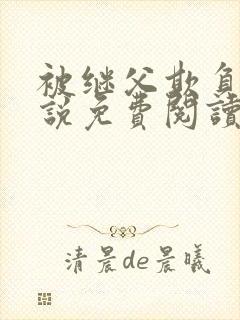 被继父欺负
說免費閱讀
清晨de晨曦